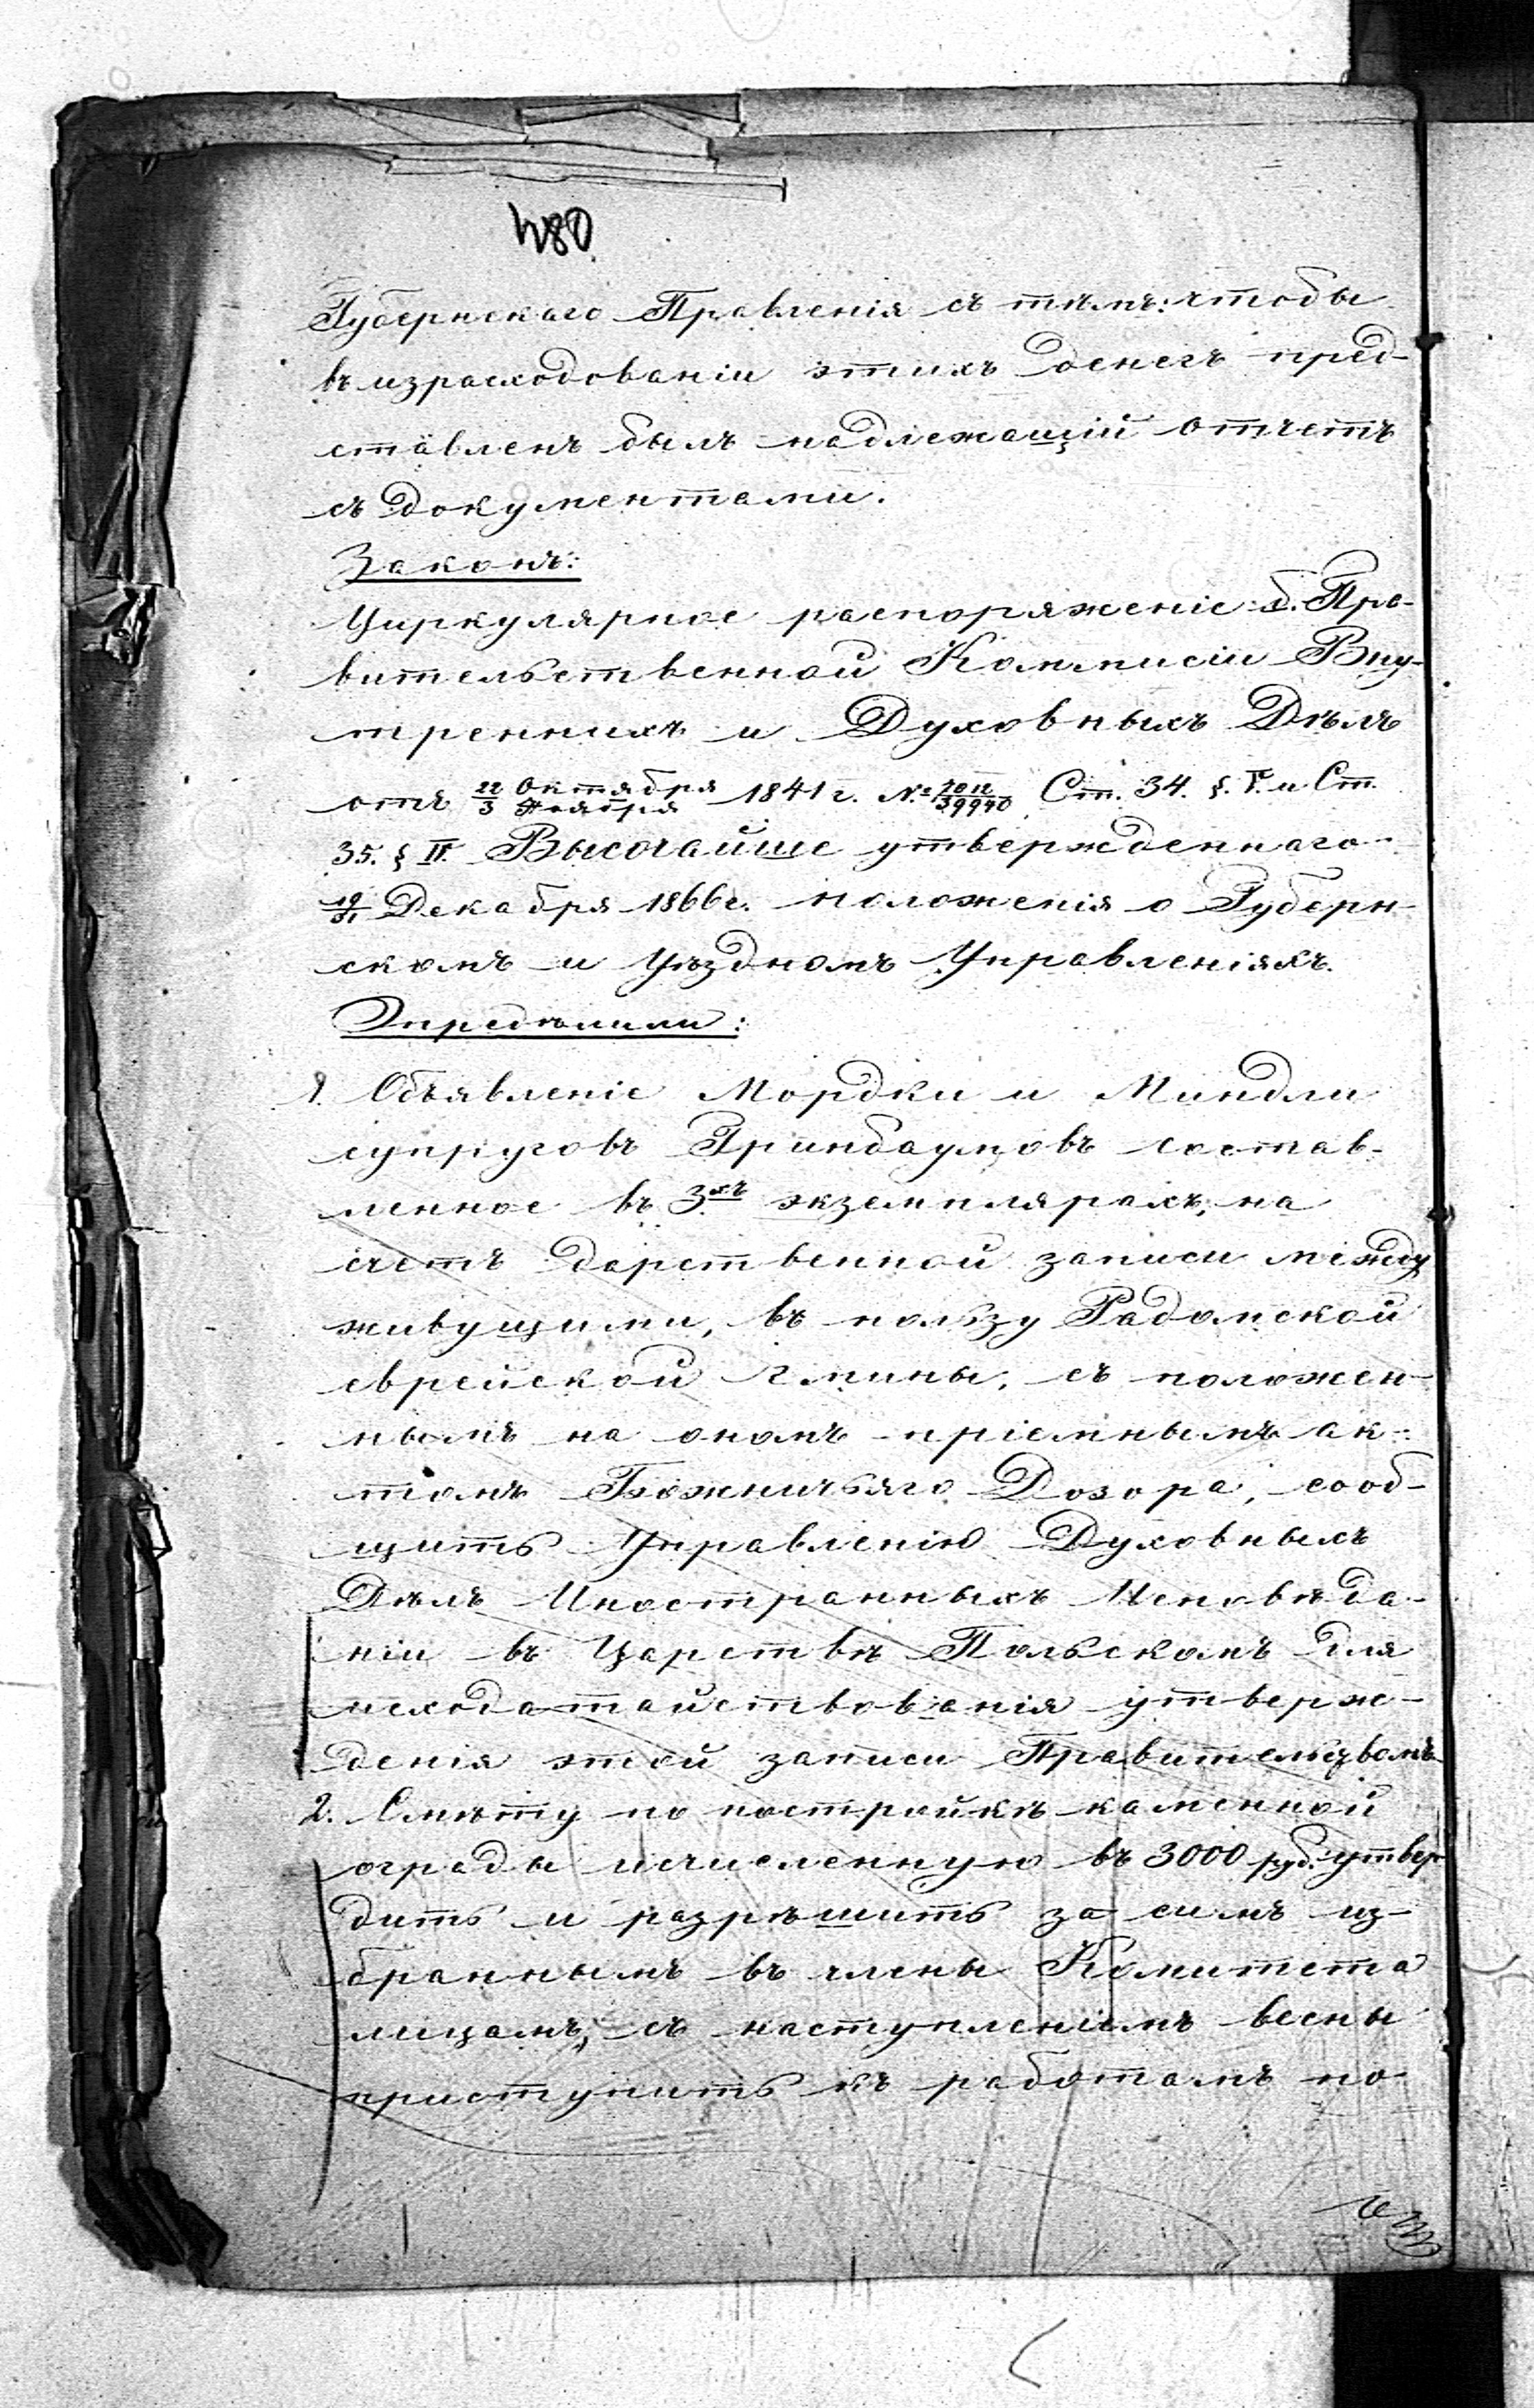 480
Губернскаго Правленія съ тѣмъ: чтобы
въ израсходованіи этихъ денегъ пред-
ставленъ былъ надлежащій отчетъ
съ документами.
Законъ:
Циркулярное распоряженіе б. Пра-
вительственной Коммисіи Вну-
треннихъ и Духовныхъ Дѣлъ
отъ 22 Октября / 3 Ноября 1841 г. № 7012/39940 Ст. 34. §. V. и Ст.
35. § II. Высочайше утвержденнаго
19/31 Декабря 1866 г. положенія о Губерн-
скомъ и Уѣздномъ Управленіяхъ.
Опредѣлили:
1. Объявленіе Мордки и Миндли
супруговъ Гринбаумовъ состав-
ленное въ 3хъ экземплярахъ, на
счетъ дарственной записи между
живущими, въ пользу Радомской
еврейской гмины, съ положен-
нымъ на ономъ пріемнымъ ак-
томъ Божничьяго Дозора, сооб-
щить Управленію Духовныхъ
Дѣлъ Иностранныхъ Исповѣда-
ніи въ Царствѣ Польскомъ для
исходатайствованія утверж-
денія этой записи Правительствомъ
2. Смѣту по постройкѣ каменной
ограды исчисленную въ 3000 руб. утвер
дить и разрѣшить за симъ из-
браннымъ въ члены Комитета
лицамъ, съ наступленіемъ весны
приступить къ работамъ по